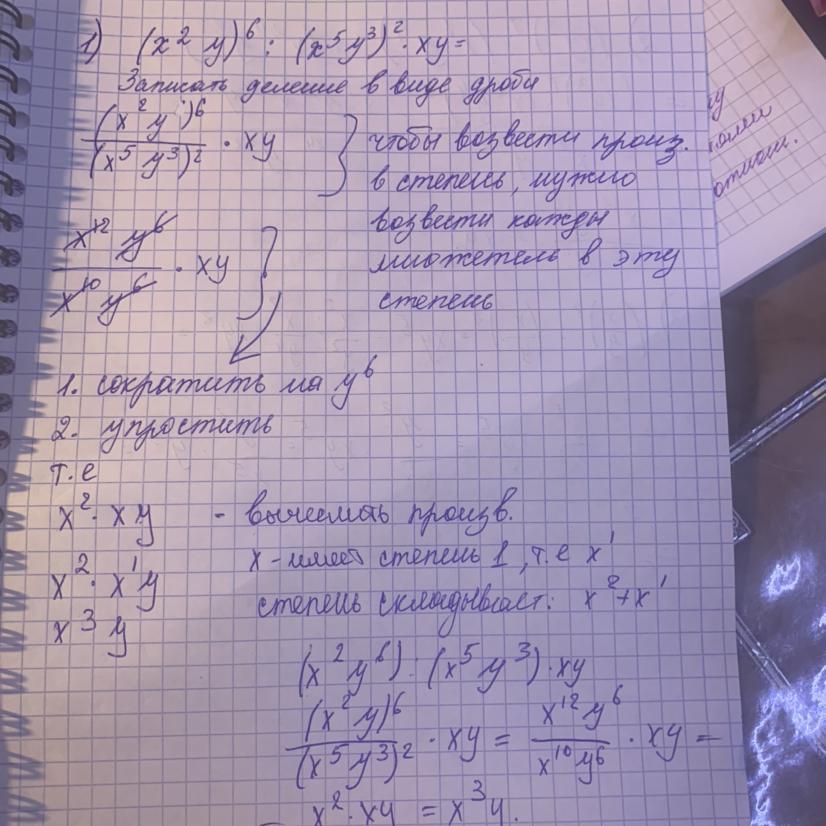 1) (x² y)⁶ : (x⁵y³)² · xy =
Записать деление в виде дроби
(x² y)⁶ / (x⁵ y³)² · xy
чтобы возвести произ.
в степень, нужно
возвести кажды
множетель в эту
степень
x¹² y⁶ / x¹⁰ y⁶ · xy
1. сократить на y⁶
2. упростить
т.е
x² · xy - вычесмать произв.
x² · x¹y
x - имеет степень 1, т.е x¹
x³ y
степень складывает: x² + x¹
(x² y⁶) : (x⁵ y³) · xy
(x² y)⁶ / (x⁵ y³)² · xy = x¹² y⁶ / x¹⁰ y⁶ · xy =
x² · xy = x³ y.
ому
отнош.